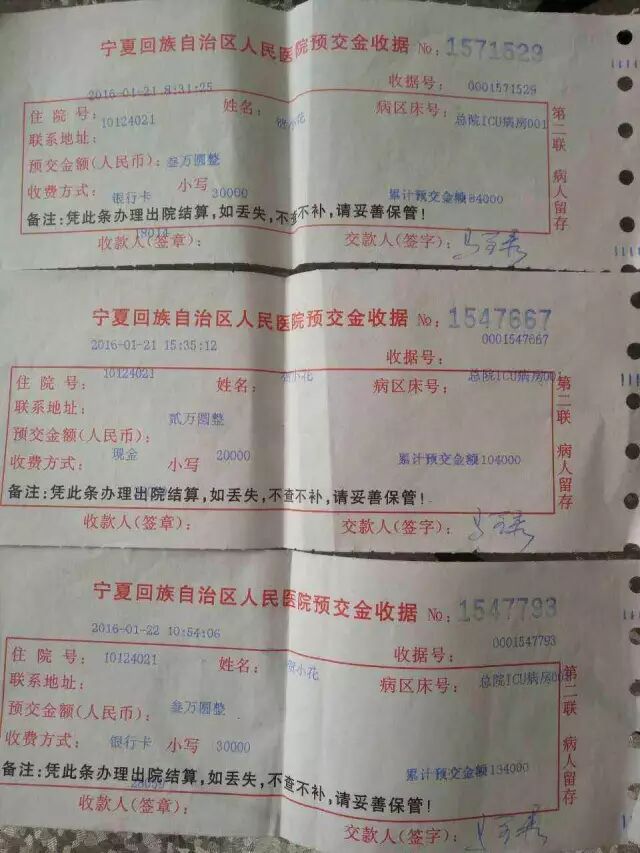 宁夏回族自治区人民医院预交金收据 No: 1571529
2016-01-21 8:31:25 收据号: 0001571529
住院号: 10124021 姓名: 小花 病区床号: 总院ICU病房001
联系地址:
预交金额(人民币): 叁万圆整
收费方式: 银行卡 小写 30000 累计预交金额84000
备注:凭此条办理出院结算,如丢失,不查不补,请妥善保管!
收款人(签章): 交款人(签字):
第二联 病人留存
宁夏回族自治区人民医院预交金收据 No: 1547667
2016-01-21 15:35:12 收据号: 0001547667
住院号: 10124021 姓名: 小花 病区床号: 总院ICU病房001
联系地址:
预交金额(人民币): 贰万圆整
收费方式: 现金 小写 20000 累计预交金额104000
备注:凭此条办理出院结算,如丢失,不查不补,请妥善保管!
收款人(签章): 交款人(签字):
第二联 病人留存
宁夏回族自治区人民医院预交金收据 No: 1547793
2016-01-22 10:54:06 收据号: 0001547793
住院号: 10124021 姓名: 小花 病区床号: 总院ICU病房001
联系地址:
预交金额(人民币): 叁万圆整
收费方式: 银行卡 小写 30000 累计预交金额134000
备注:凭此条办理出院结算,如丢失,不查不补,请妥善保管!
收款人(签章): 交款人(签字):
第二联 病人留存